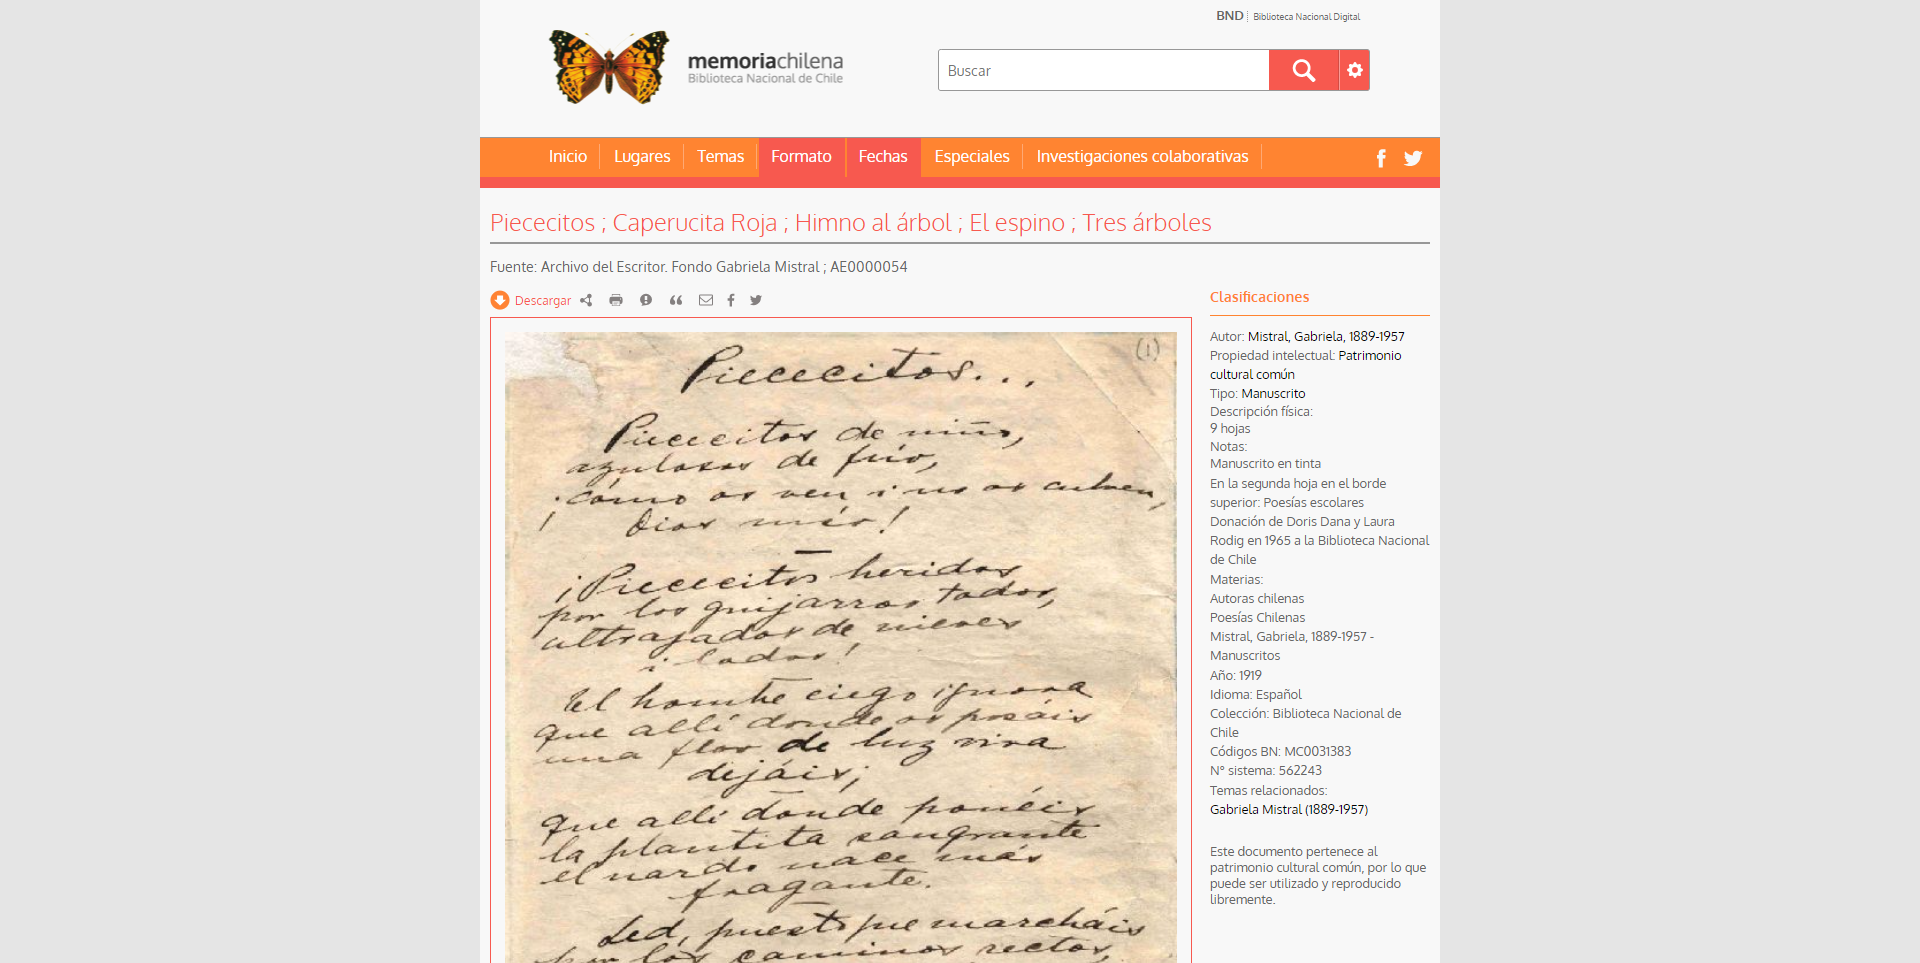 BND Biblioteca Nacional Digital
memoriachilena
Biblioteca Nacional de Chile
Buscar
Inicio Lugares Temas Formato Fechas Especiales Investigaciones colaborativas
Piececitos ; Caperucita Roja ; Himno al árbol ; El espino ; Tres árboles
Fuente: Archivo del Escritor. Fondo Gabriela Mistral ; AE0000054
Descargar
(1)
Piececitos...
Piececitos de niño,
azulosos de frío,
¡cómo os ven i no os cubren,
¡ Dios mío!
¡Piececitos heridos
por los guijarros todos,
ultrajados de nieves
i lodos!
El hombre ciego ignora
que allí donde os posáis
una flor de luz viva
dejáis;
que allí donde ponéis
la plantita sangrante
el nardo nace más
fragante.
Sed, puesto que marcháis
por los caminos rectos,
Clasificaciones
Autor: Mistral, Gabriela, 1889-1957
Propiedad intelectual: Patrimonio
cultural común
Tipo: Manuscrito
Descripción física:
9 hojas
Notas:
Manuscrito en tinta
En la segunda hoja en el borde
superior: Poesías escolares
Donación de Doris Dana y Laura
Rodig en 1965 a la Biblioteca Nacional
de Chile
Materias:
Autoras chilenas
Poesías Chilenas
Mistral, Gabriela, 1889-1957 -
Manuscritos
Año: 1919
Idioma: Español
Colección: Biblioteca Nacional de
Chile
Códigos BN: MC0031383
N° sistema: 562243
Temas relacionados:
Gabriela Mistral (1889-1957)
Este documento pertenece al
patrimonio cultural común, por lo que
puede ser utilizado y reproducido
libremente.